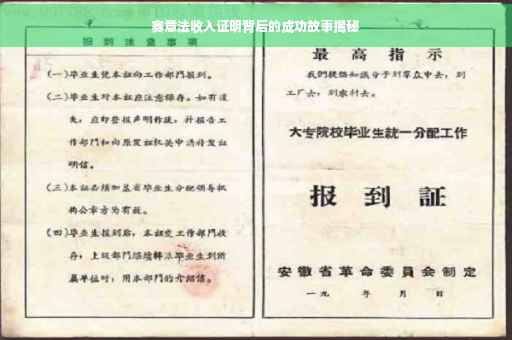 赛意法收入证明背后的成功故事揭秘
报到注意事项
(一)毕业生凭本证向工作部门报到。
(二)毕业生对本证应注意保存。如有遗
失,应即登报声明作废,并报告工
作部门和向原发证机关申请补发证
明信。
(三)本证必须加盖省毕业生分配领导机
构公章方为有效。
(四)毕业生报到后,本证交工作部门收
存;上级部门继续转派毕业生到所
属单位时,用本部门的介绍信。
最高指示
我们提倡知识分子到群众中去,到
工厂去,到农村去。
大专院校毕业生统一分配工作
报到证
安徽省革命委员会制定
一九 年 月 日